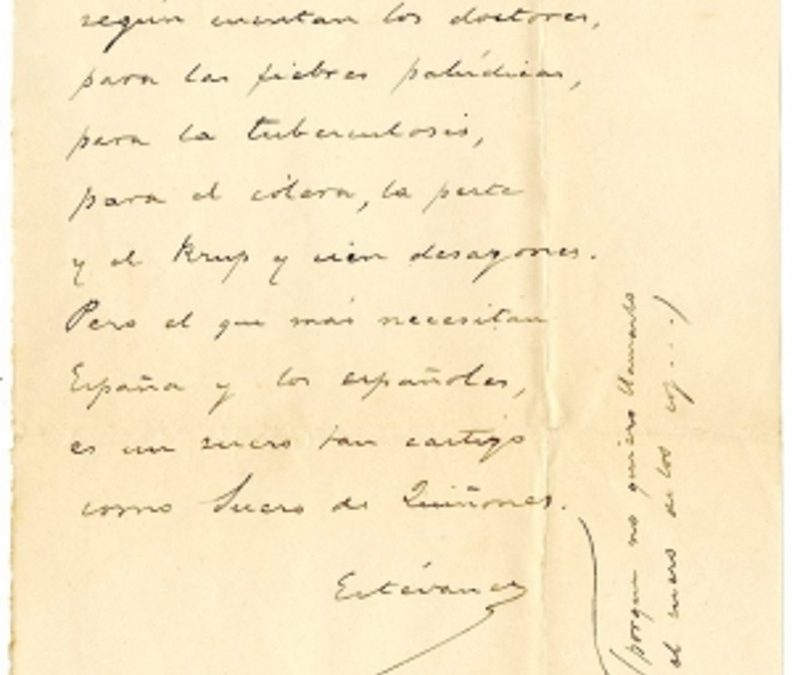 según cuentan los doctores,
para las fiebres palúdicas,
para la tuberculosis,
para el cólera, la peste
y el Krup y cien desazones.
Pero el que más necesitan
España y los españoles,
es un suero tan castizo
como Suero de Quiñones.
Estévanez
(porque no quiero llamarlo
el suero de los coj....)